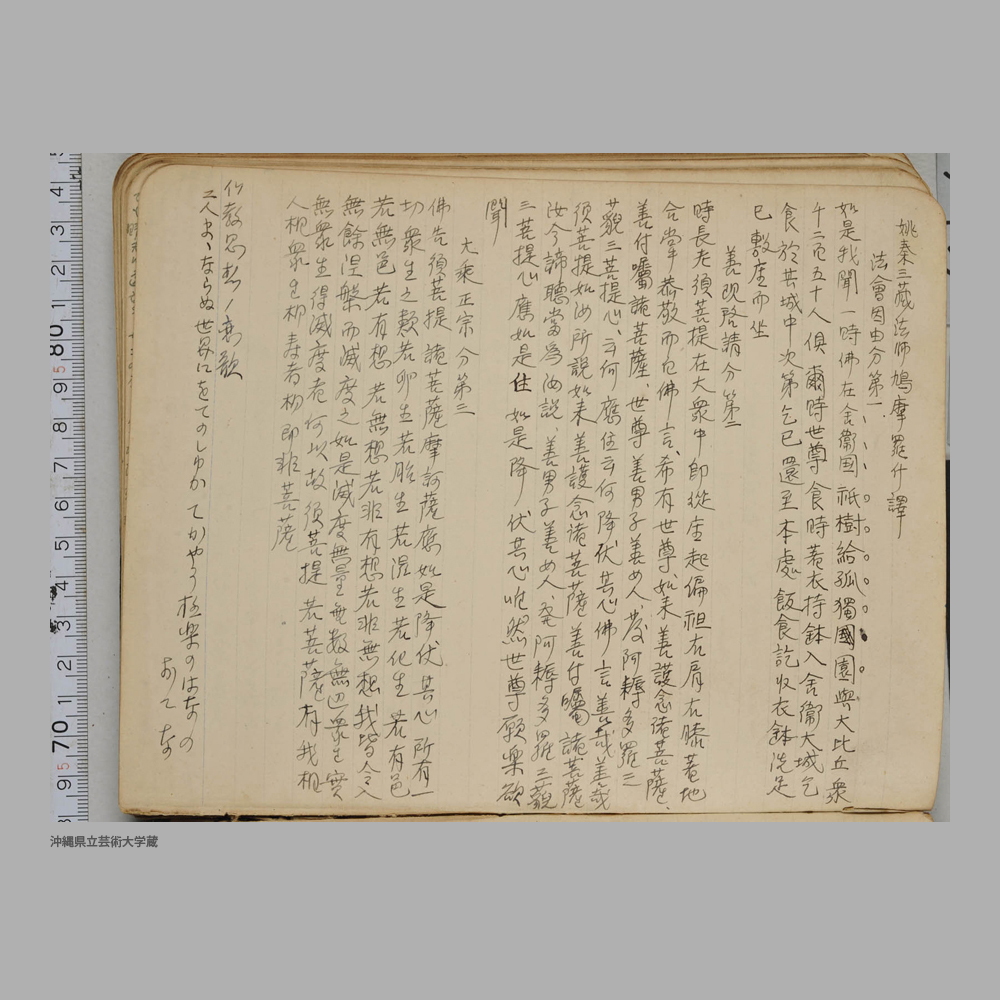 姚秦三蔵法師鳩摩羅什譯
法會因由分第一
如是我聞一時佛在舎衞国祇樹給孤獨國園與大比丘衆
千二百五十人倶爾時世尊食時著衣持鉢入舎衞大城乞
食於其城中次第乞已還至本處飯食訖收衣鉢洗足
已敷座而坐
善現啓請分第二
時長老須菩提在大衆中即從座起偏袒右肩右膝著地
合掌恭敬而白佛言、希有世尊如来善護念諸菩薩、
善付囑諸菩薩、世尊善男子善女人、發阿耨多羅三
藐三菩提心、云何應住云何降伏其心佛言善哉善哉
須菩提如汝所説如来善護念諸菩薩善付囑諸菩薩
汝今諦聽當為汝説、善男子善女人、発阿耨多羅三藐
三菩提心應如是住如是降伏其心唯然世尊願樂欲
聞
大乗正宗分第三
佛告須菩提諸菩薩摩訶薩應如是降伏其心所有一
切衆生之類若卵生若胎生若湿生若化生若有色
若無色若有想若無想若非有想若非無想我皆令入
無餘涅槃而滅度之如是滅度無量無数無辺衆生實
無衆生得滅度者何以故須菩提若菩薩有我相
人相衆生相寿者相即非菩薩
仏教思想ノ
二人ままならぬ世界にをてのしゆかてかやう極楽のはなの
おてな
80
70
沖縄県立芸術大学蔵